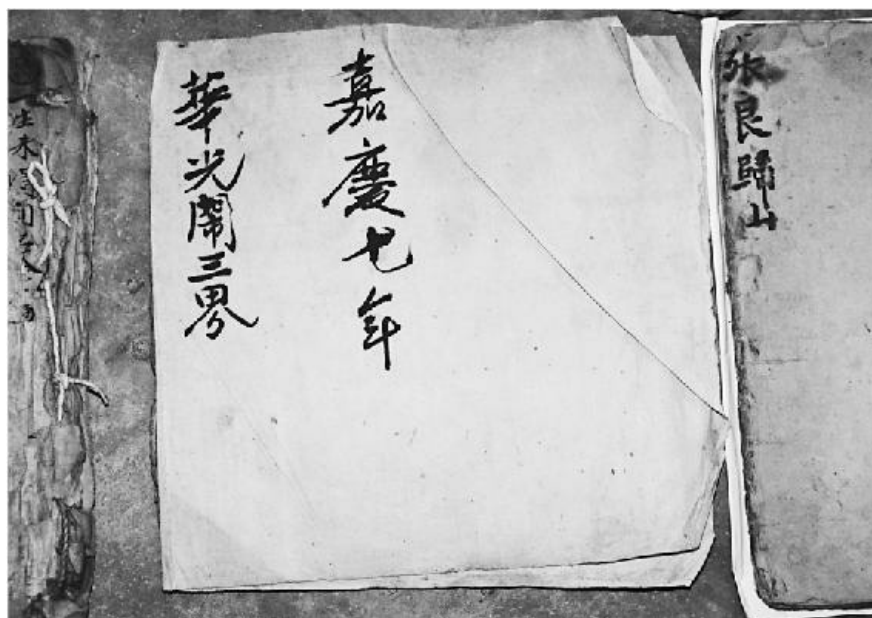 張良歸山
嘉慶七年
華光鬧三界